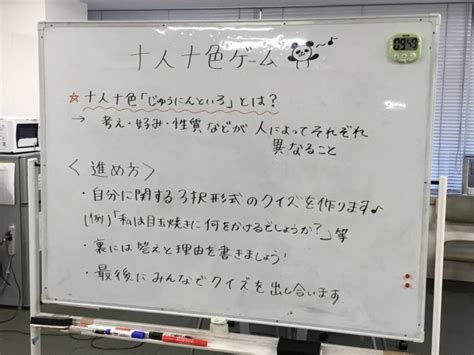 十人十色ゲーム
☆十人十色「じゅうにんといろ」とは?
→ 考え・好み・性質などが 人によってそれぞれ
異なること
〈進め方〉
・自分に関する3択形式のクイズを作ります♪
(例)「私は目玉焼きに何をかけるでしょうか?」等
・裏には答えと理由を書きましょう!
・最後にみんなでクイズを出し合います